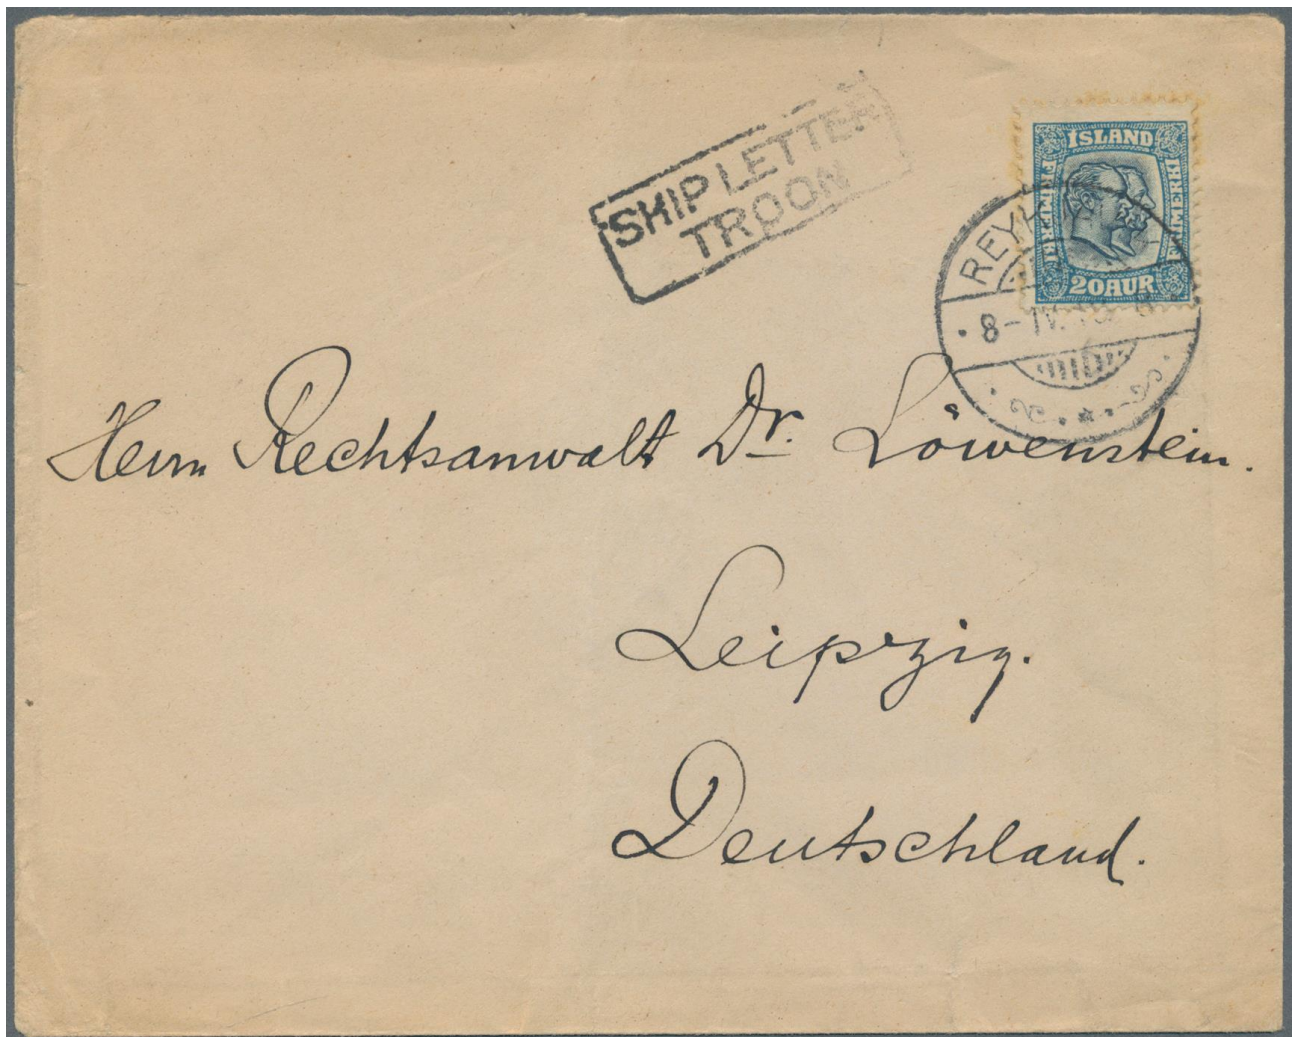 SHIP LETTER
TROON
ÍSLAND
FRIMERKI
FRIMERKI
20 AUR
8-IV.
Herrn Rechtsanwalt Dr. Löwenstein.
Leipzig.
Deutschland.